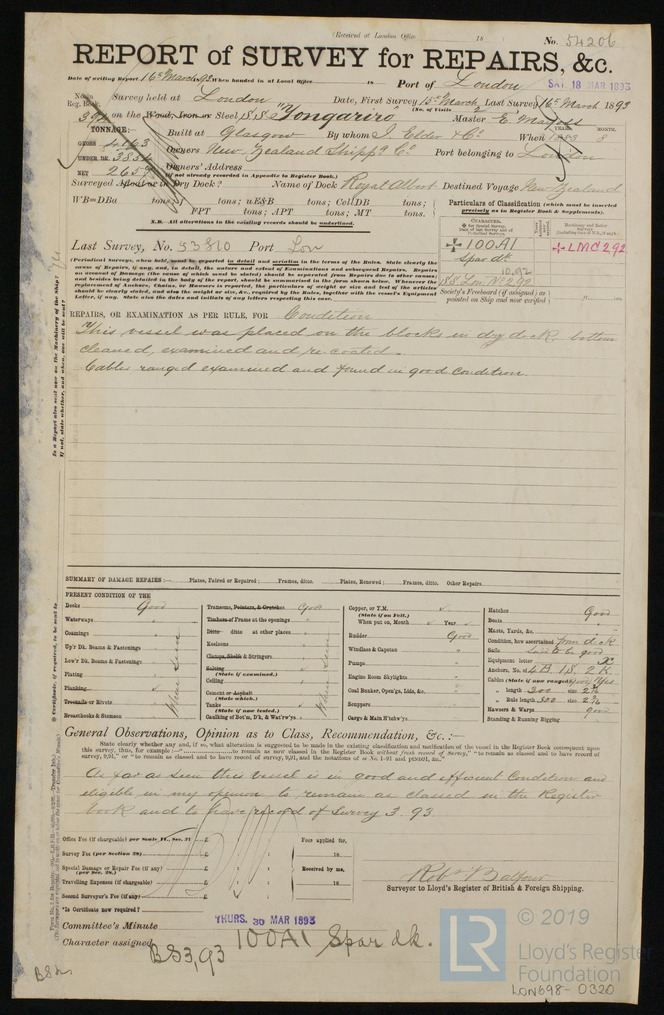 (Received at London Office 18
No. 54206
REPORT of SURVEY for REPAIRS, &c.
Date of writing Report 16th March 93 When handed in at Local Office 18 Port of London
SAT. 18 MAR 1893
No. in Reg. Book. Survey held at London Date, First Survey 15th March Last Survey 16th March 1893
(No. of Visits 2)
394 on the Wood, Iron or Steel S.S. "Tongariro Master E.
TONNAGE:-
GROSS 4163
UNDER DK. 3554
NET
Built at Glasgow By whom J. Elder & Co. When 1883 8
YEARS. MONTH.
Owners New Zealand Shipp'g Co. Port belonging to London
Owners' Address
(If not already recorded in Appendix to Register Book.)
Surveyed Afloat or in Dry Dock? Name of Dock Royal Albert Destined Voyage New Zealand
WB=DBa tons; uE&B tons; CellDB tons;
FPT tons; APT tons; MT tons.
N.B.—All alterations in the existing records should be underlined.
Particulars of Classification (which must be inserted
precisely as in Register Book & Supplements).
CHARACTER.
100A1
Spar dk
10,92
SS. Lon. No. 2,92
LMC 2,92
Society's Freeboard (if assigned) as
painted on Ship and now verified
Last Survey, No. 53810 Port Lon
(Periodical Surveys, when held, must be reported in detail and seriatim in the terms of the Rules. State clearly the
cause of Repairs, if any, and, in detail, the nature and extent of Examinations and subsequent Repairs. Repairs
on account of Damages (the cause of which must be stated) should be separated from Repairs due to other causes;
and besides being detailed in the body of the report, should be summarised in the form shewn below. Whenever the
replacement of Anchors, Chains, or Hawsers is reported, the particulars of weight or size and test of the articles
should be clearly stated, and also the weight or size, &c., required by the Rules, together with the vessel's Equipment
Letter, if any. State also the dates and initials of any letters respecting this case.
REPAIRS, OR EXAMINATION AS PER RULE, FOR Condition
This vessel was placed on the blocks in dry dock, bottom
cleaned, examined and re-coated.
Cables ranged examined and found in good condition.
SUMMARY OF DAMAGE REPAIRS:— Plates, Faired or Repaired; Frames, ditto. Plates, Renewed; Frames, ditto. Other Repairs
PRESENT CONDITION OF THE
Decks Good
Waterways
Coamings
Up'r Dk. Beams & Fastenings
Low'r Dk. Beams & Fastenings
Plating
Planking
Treenails or Rivets
Breasthooks & Stemson
When seen
Transoms, Pointers, & Crutches Good
Timbers or Frame at the openings
Ditto ditto at other places
Keelsons
Clamps, Shelfs & Stringers
Salting
(State if examined.)
Ceiling
Cement or Asphalt
(State which.)
Tanks
(State if now tested.)
Caulking of Bot'm, D'k, & Wat'rw'ys
When seen
Copper, or Y.M.
(State if on Felt.)
When put on, Month Year
Rudder Good
Windlass & Capstan
Pumps
Engine Room Skylights
Coal Bunker, Open'gs, Lids, &c.
Scuppers
Cargo & Main H'tchw'ys
Hatches Good
Boats
Masts, Yards, &c.
Condition, how ascertained from dick
Sails Said to be good
Equipment letter
Anchors, No. of 4B. 1S. 2K.
Cables (State if now ranged) Good Yes
" length 300 size 2 3/16
" Rule length 300 size 2 3/16
Hawsers & Warps good
Standing & Running Rigging
General Observations, Opinion as to Class, Recommendation, &c. :—
State clearly whether any and, if so, what alteration is suggested to be made in the existing classification and notification of the vessel in the Register Book consequent upon
As far as seen this vessel is in good and efficient condition and
eligible in my opinion to remain as classed in the Register
book and to have record of Survey 3.93.
Office Fee (if chargeable) per Scale II., Sec. 27 £
Survey Fee (per Section 28) £
Special Damage or Repair Fee (if any) £
(per Sec. 28.)
Travelling Expenses (if chargeable) £
Second Surveyor's Fee (if any) £
Fees applied for,
18
Received by me,
18
Robt. Balfour
Surveyor to Lloyd's Register of British & Foreign Shipping.
*Is Certificate now required?
Committee's Minute THURS. 30 MAR 1893
Character assigned 100A1 Spar dk.
BS3,93
LR
© 2019
Lloyd's Register
Foundation
LON698-0320